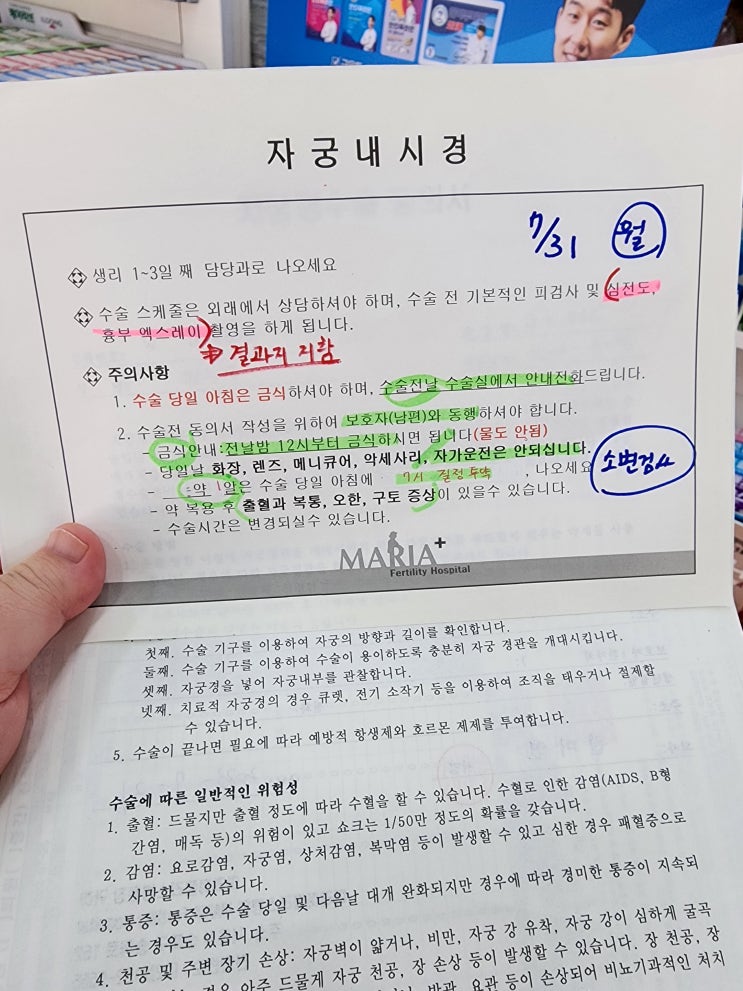 자궁내시경
7/31 월
생리 1~3일 째 담당과로 나오세요
수술 스케줄은 외래에서 상담하셔야 하며, 수술 전 기본적인 피검사 및 심전도,
흉부 엑스레이 촬영을 하게 됩니다.
결과지 지참
주의사항
1. 수술 당일 아침은 금식하셔야 하며, 수술전날 수술실에서 안내전화드립니다.
2. 수술전 동의서 작성을 위하여 보호자(남편)와 동행하셔야 합니다.
금식안내:전날밤 12시부터 금식하시면 됩니다(물도 안됨)
- 당일날 화장, 렌즈, 메니큐어, 악세사리, 자가운전은 안되십니다.
- 약 1알은 수술 당일 아침에 7시 질정투약 , 나오세요
소변검사
- 약 복용 후 출혈과 복통, 오한, 구토 증상이 있을수 있습니다.
- 수술시간은 변경되실수 있습니다.
MARIA+
Fertility Hospital
첫째. 수술 기구를 이용하여 자궁의 방향과 길이를 확인합니다.
둘째. 수술 기구를 이용하여 수술이 용이하도록 충분히 자궁 경관을 개대시킵니다.
셋째. 자궁경을 넣어 자궁내부를 관찰합니다.
넷째. 치료적 자궁경의 경우 큐렛, 전기 소작기 등을 이용하여 조직을 태우거나 절제할
수 있습니다.
5. 수술이 끝나면 필요에 따라 예방적 항생제와 호르몬 제제를 투여합니다.
수술에 따른 일반적인 위험성
1. 출혈: 드물지만 출혈 정도에 따라 수혈을 할 수 있습니다. 수혈로 인한 감염(AIDS, B형
간염, 매독 등)의 위험이 있고 쇼크는 1/50만 정도의 확률을 갖습니다.
2. 감염: 요로감염, 자궁염, 상처감염, 복막염 등이 발생할 수 있고 심한 경우 패혈증으로
사망할 수 있습니다.
3. 통증: 통증은 수술 당일 및 다음날 대개 완화되지만 경우에 따라 경미한 통증이 지속되
는 경우도 있습니다.
4. 천공 및 주변 장기 손상: 자궁벽이 얇거나, 비만, 자궁 강 유착, 자궁 강이 심하게 굴곡
경우 아주 드물게 자궁 천공, 장 손상 등이 발생할 수 있습니다. 장 천공, 장
방광, 요관 등이 손상되어 비뇨기과적인 처치